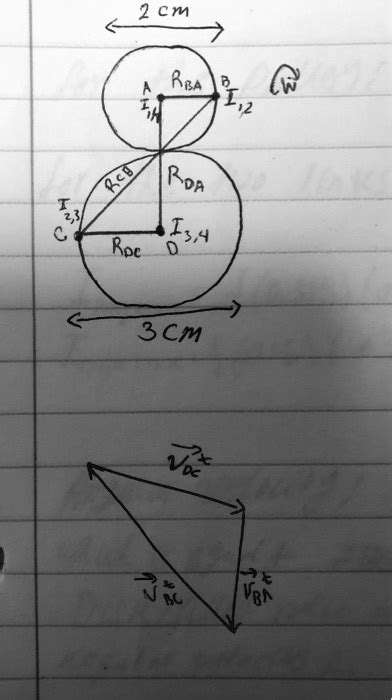 2 cm
A R_BA B
I1,4 I1,2 W
R_CB R_DA
I2,3
C I3,4
R_DC D
3 cm
V_DC^t
V_BC^t V_BA^t